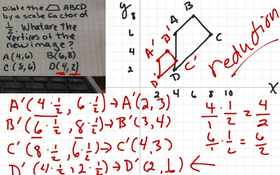 Dilate the ABCD
by a scale factor of
1/2. What are the
vertices of the
new image?
A(4,6) B(6,8)
C(8,6) D(4,2)
y
8
6
4
2
2 4 6 8 10
x
A
B
C
D
A'
B'
C'
D'
reduction
A'(4·1/2, 6·1/2) → A'(2,3)
B'(6·1/2, 8·1/2) → B'(3,4)
C'(8·1/2, 6·1/2) → C'(4,3)
D'(4·1/2, 2·1/2) → D'(2,1) ←
4/1 · 1/2 = 4/2
6/1 · 1/2 = 6/2